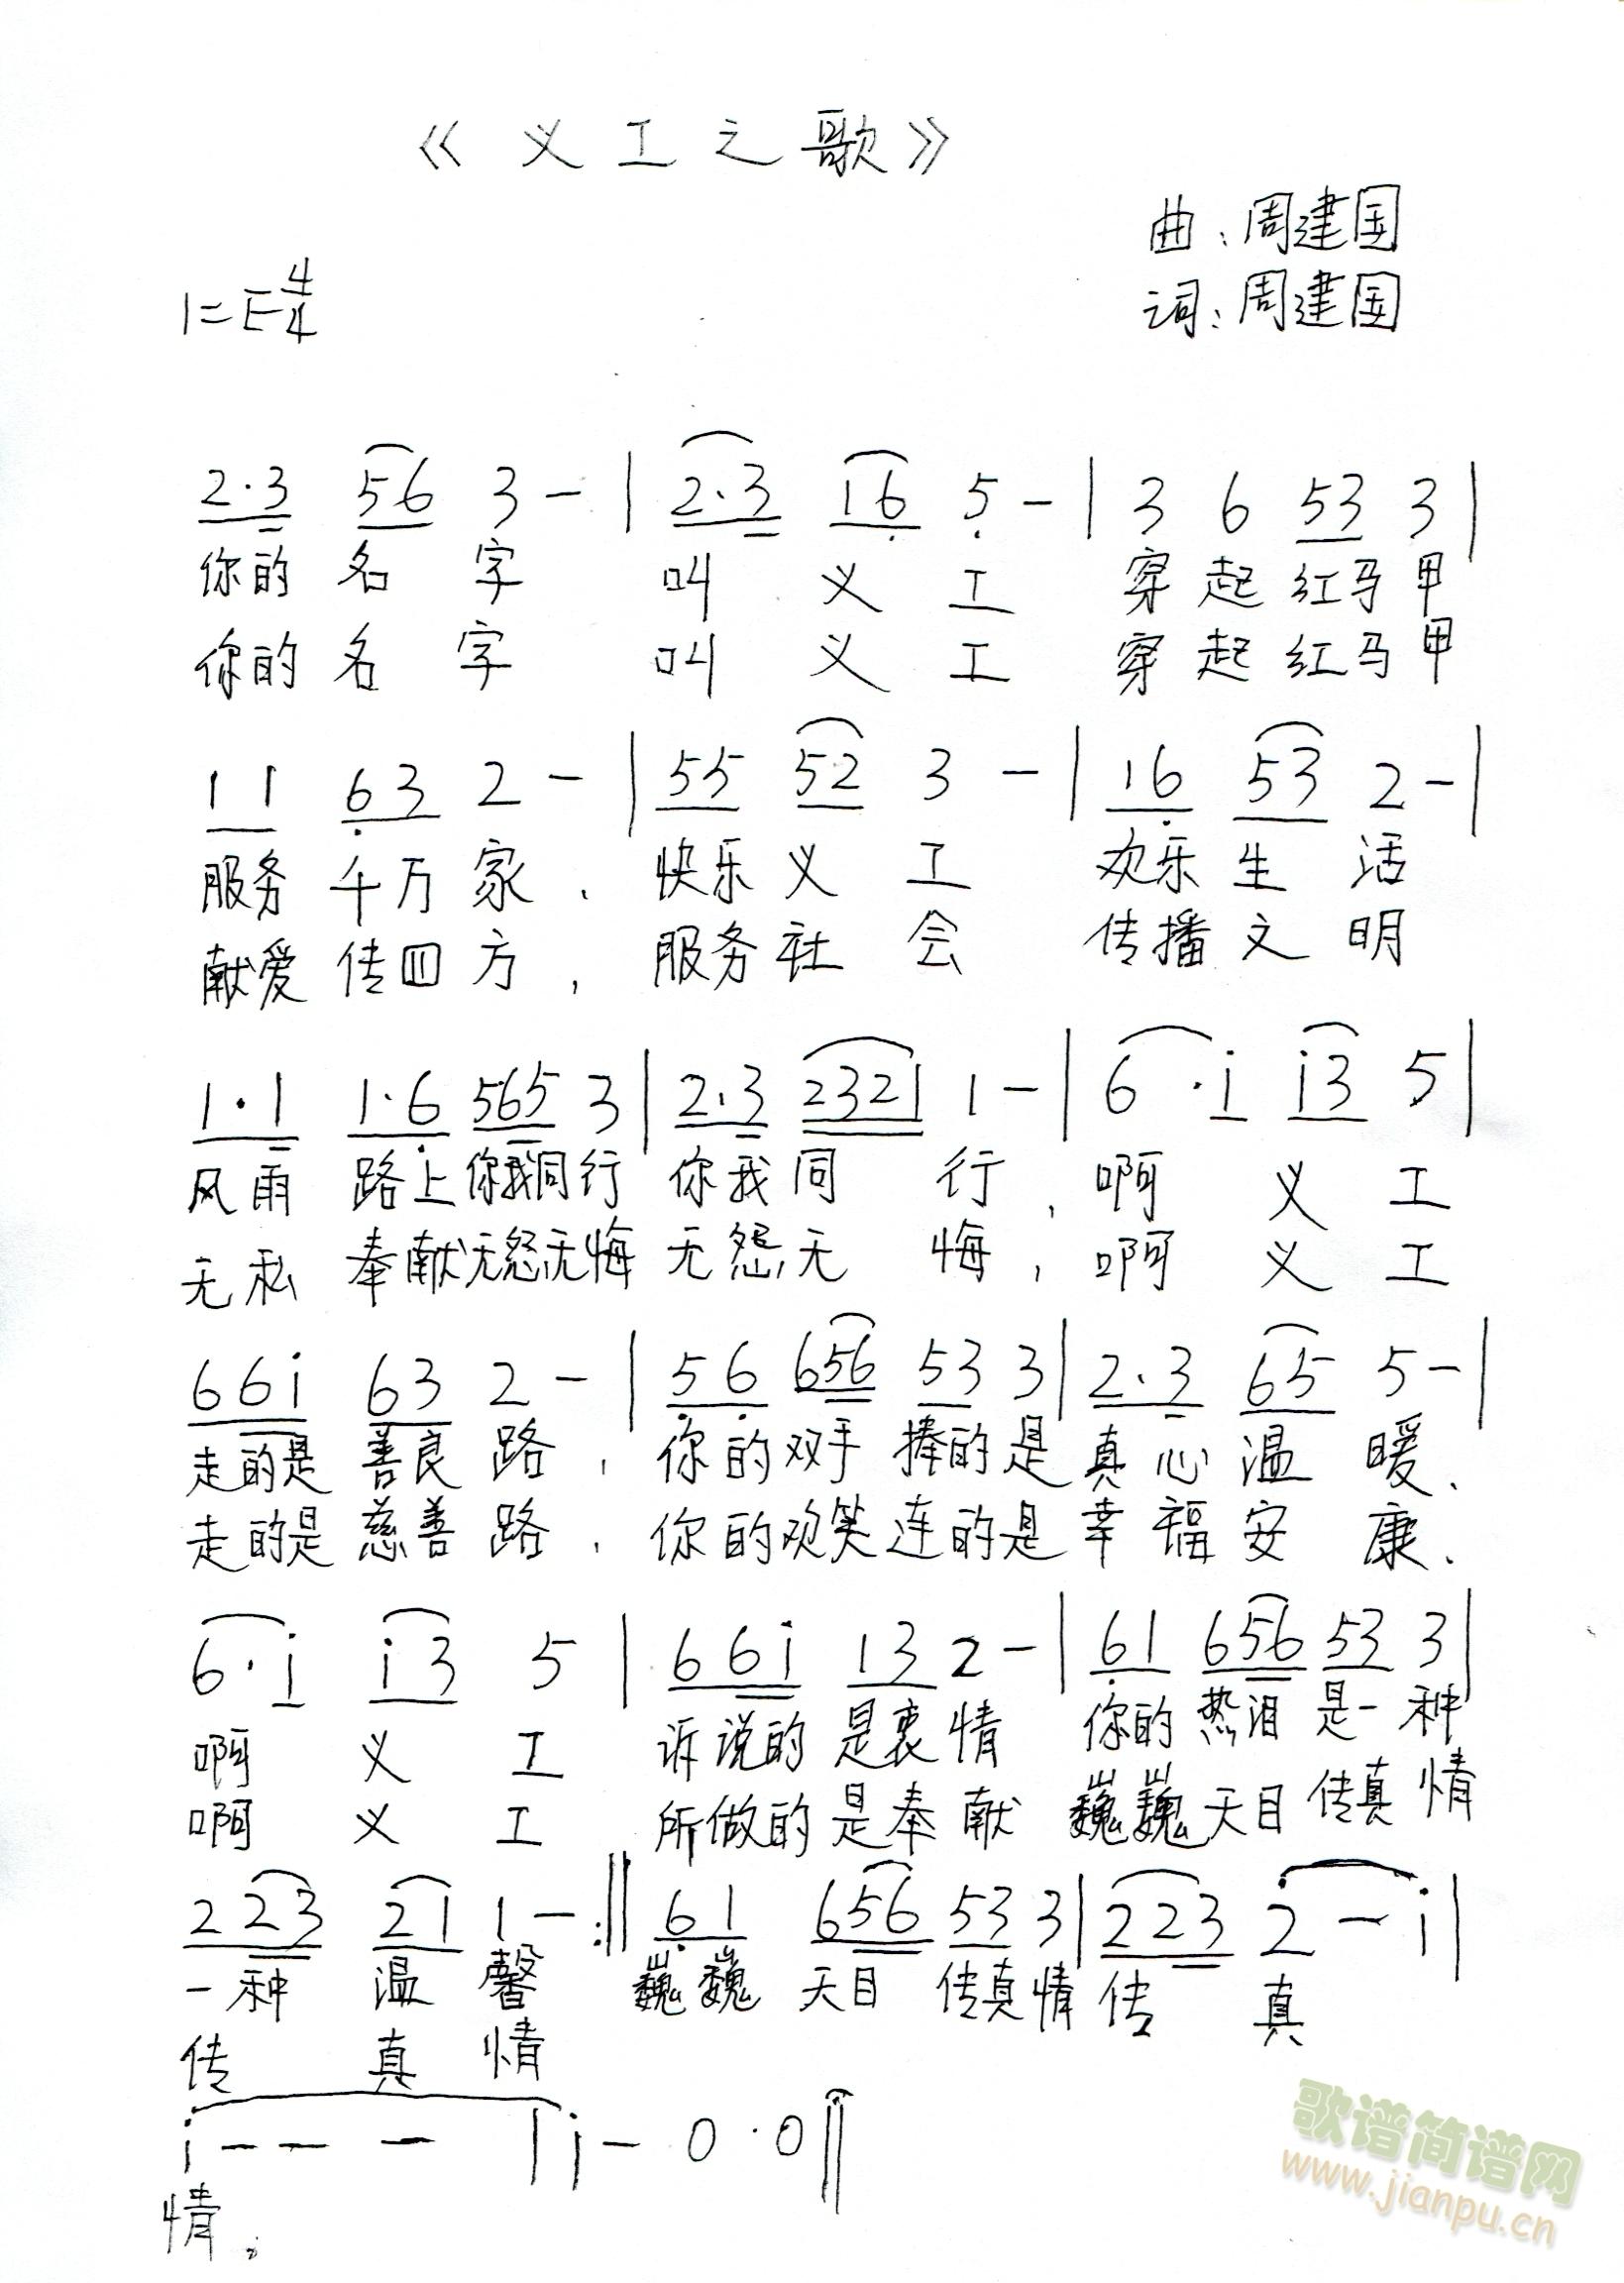 《义工之歌》
曲：周建国
1=E 4/4
词：周建国
2·3 56 3 - | 2·3 16 5 - | 3 6 53 3 |
你的 名 字 叫 义 工 穿 起 红马 甲
你的 名 字 叫 义 工 穿 起 红马 甲
11 63 2 - | 55 52 3 - | 16 53 2 - |
服务 千万 家、 快乐 义 工 欢乐 生 活
献爱 传四 方， 服务 社 会 传播 文 明
1·1 1·6 565 3 | 2·3 2321 1 - | 6·i i3 5 |
风雨 路上 你我同行 你我 同 行、 啊 义 工
无私 奉献 无怨无悔 无怨 无 悔， 啊 义 工
66i 63 2 - | 56 656 53 3 | 2·3 65 5 - |
走的是 善良 路、 你的 双手 捧的 是 真心 温 暖、
走的是 慈善 路、 你的 欢笑 连的 是 幸福 安 康、
6·i i3 5 | 66i 13 2 - | 61 656 53 3 |
啊 义 工 诉说的 是衷 情 你的 热泪 是一 种
啊 义 工 所做的 是奉 献 巍巍 天目 传真 情
223 21 1 - :‖ 61 656 53 3 | 223 2 - i |
一种 温 馨 巍巍 天目 传真 情 传 真
传 真 情
i - - - | i - 0·0 ‖
情。
歌谱简谱网
www.jianpu.cn